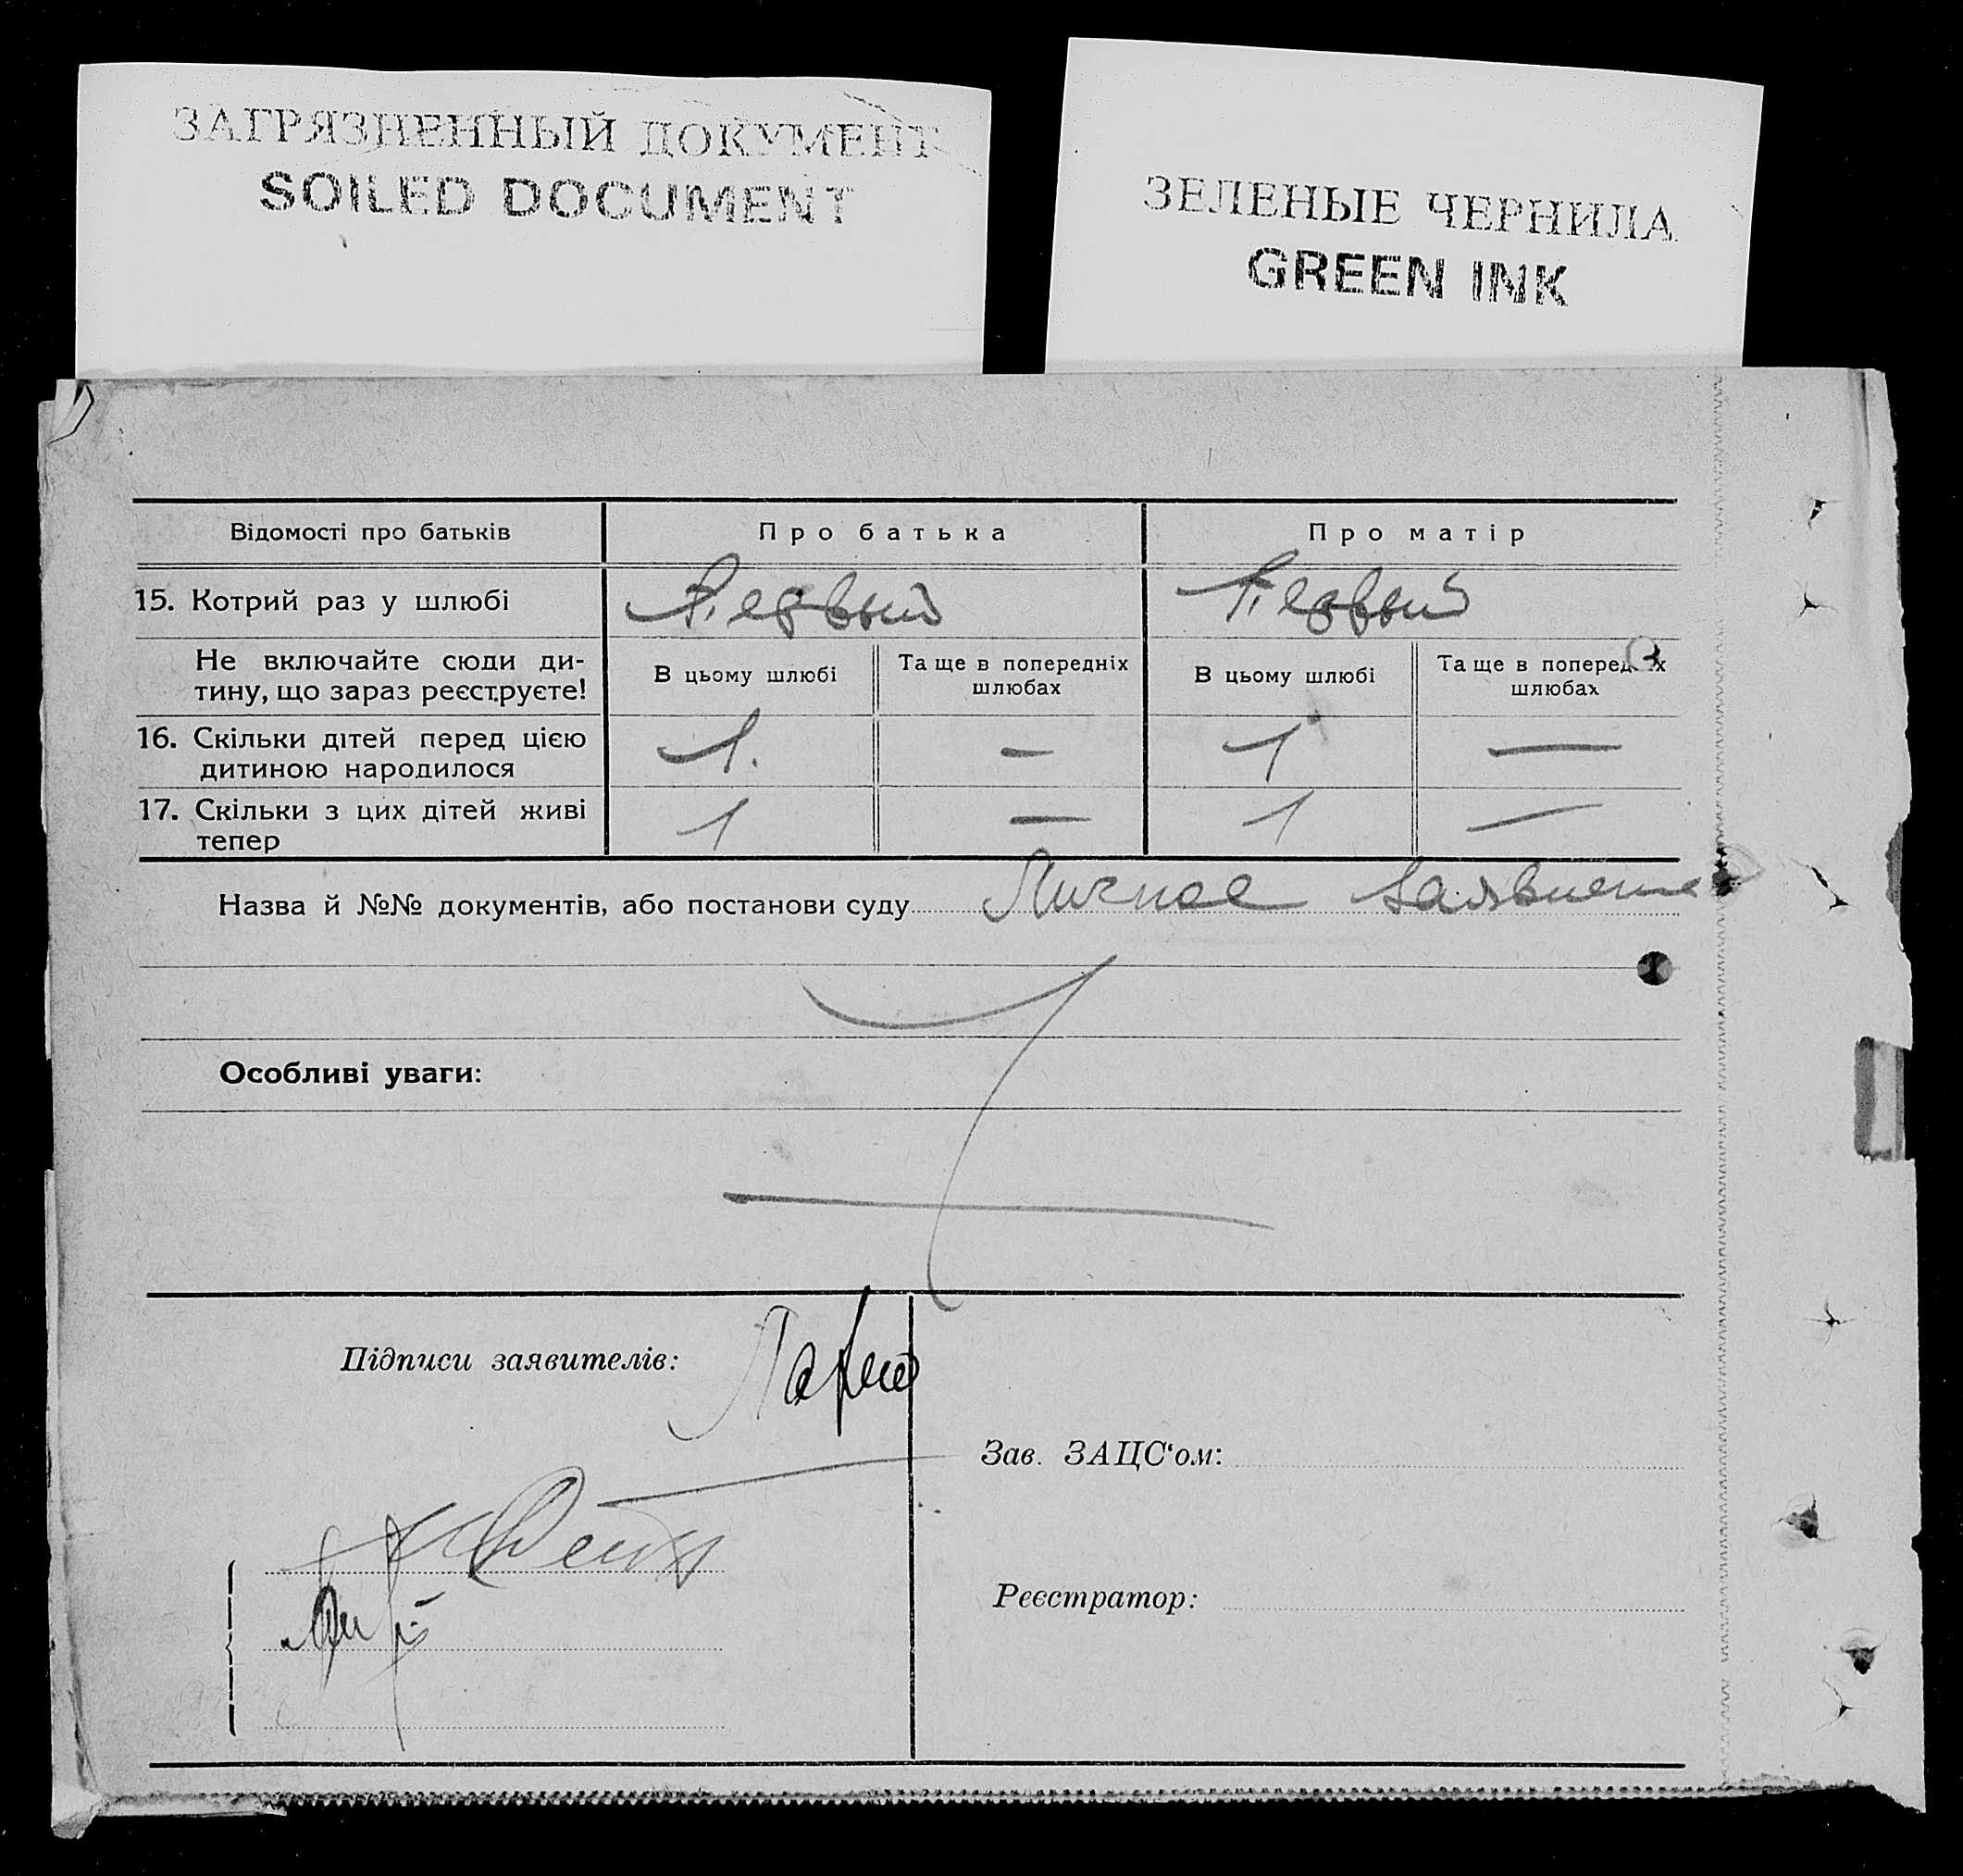 ЗАГРЯЗНЕННЫЙ ДОКУМЕНТ
SOILED DOCUMENT
ЗЕЛЕНЫЕ ЧЕРНИЛА
GREEN INK
Відомості про батьків Про батька Про матір
15. Котрий раз у шлюбі Первый Первый
Не включайте сюди ди-
тину, що зараз реєструєте!
В цьому шлюбі
Та ще в попередніх
шлюбах
В цьому шлюбі
Та ще в попередніх
шлюбах
16. Скільки дітей перед цією
дитиною народилося
1. — 1 —
17. Скільки з цих дітей живі
тепер
1 — 1 —
Назва й №№ документів, або постанови суду Личное заявление
Особливі уваги:
Підписи заявителів:
Зав. ЗАЦС‘ом:
Реєстратор: